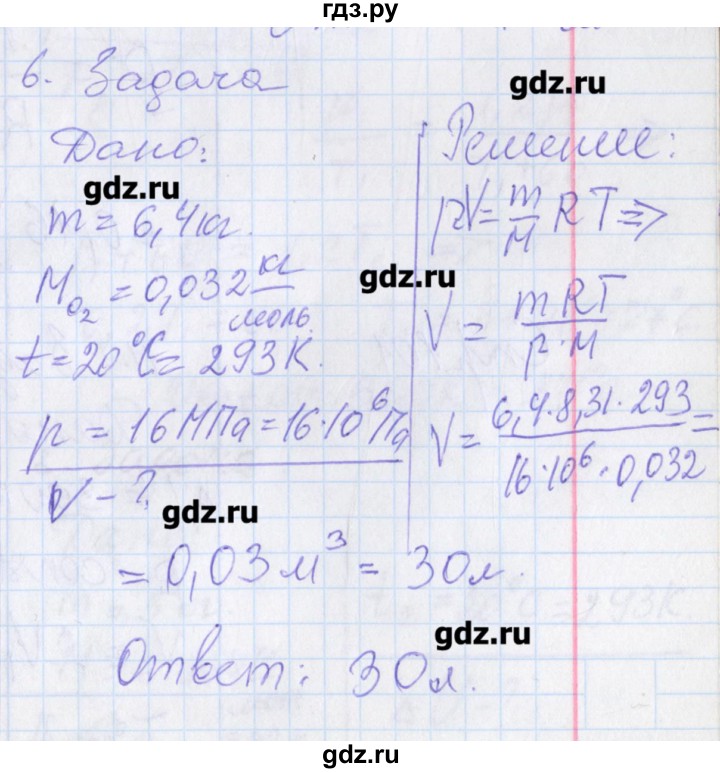 гдз.ру
6. Задача
gdz.ru
Дано:
gdz.ru
m = 6,4 кг.
M_{O_2} = 0,032 кг/моль.
t = 20°C = 293 К.
p = 16 МПа = 16·10^6 Па
V - ?
gdz.ru
Решение:
pV = m/M RT ⇒
gdz.ru
V = mRT/p·M
V = 6,4·8,31·293/16·10^6·0,032 =
= 0,03 м^3 = 30 л.
gdz.ru
Ответ: 30 л.
gdz.ru